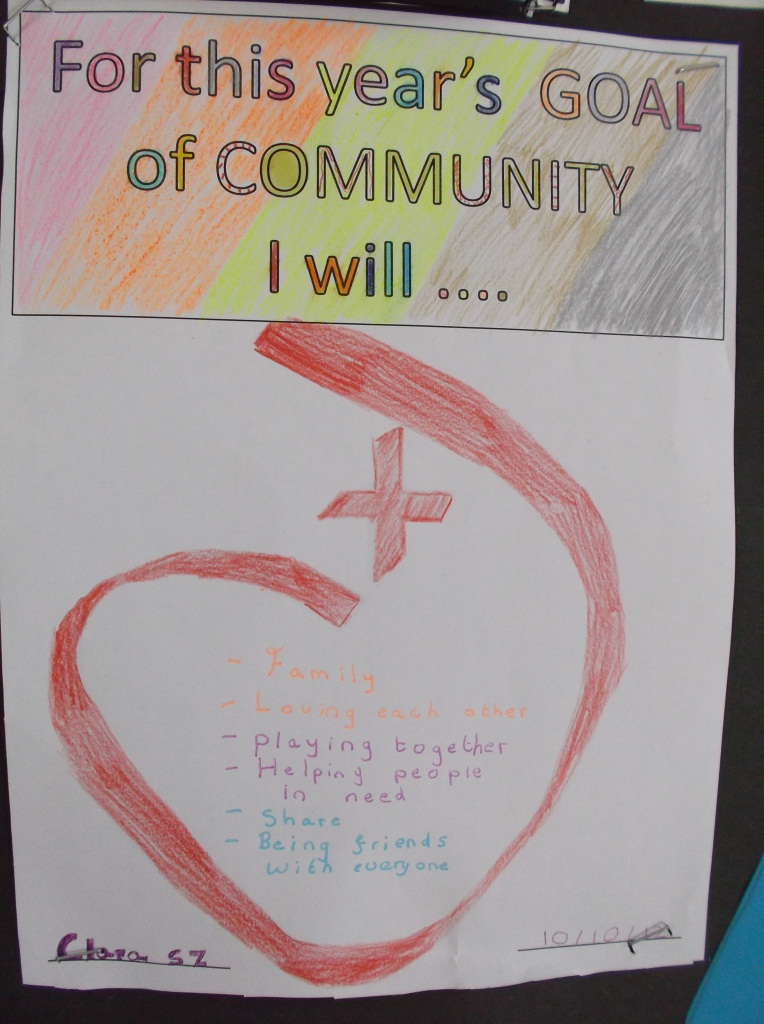 For this year's GOAL
of COMMUNITY
I will ....
- Family
- Loving each other
- playing together
- Helping people
in need
- Share
- Being friends
with everyone
Clara 10/10/